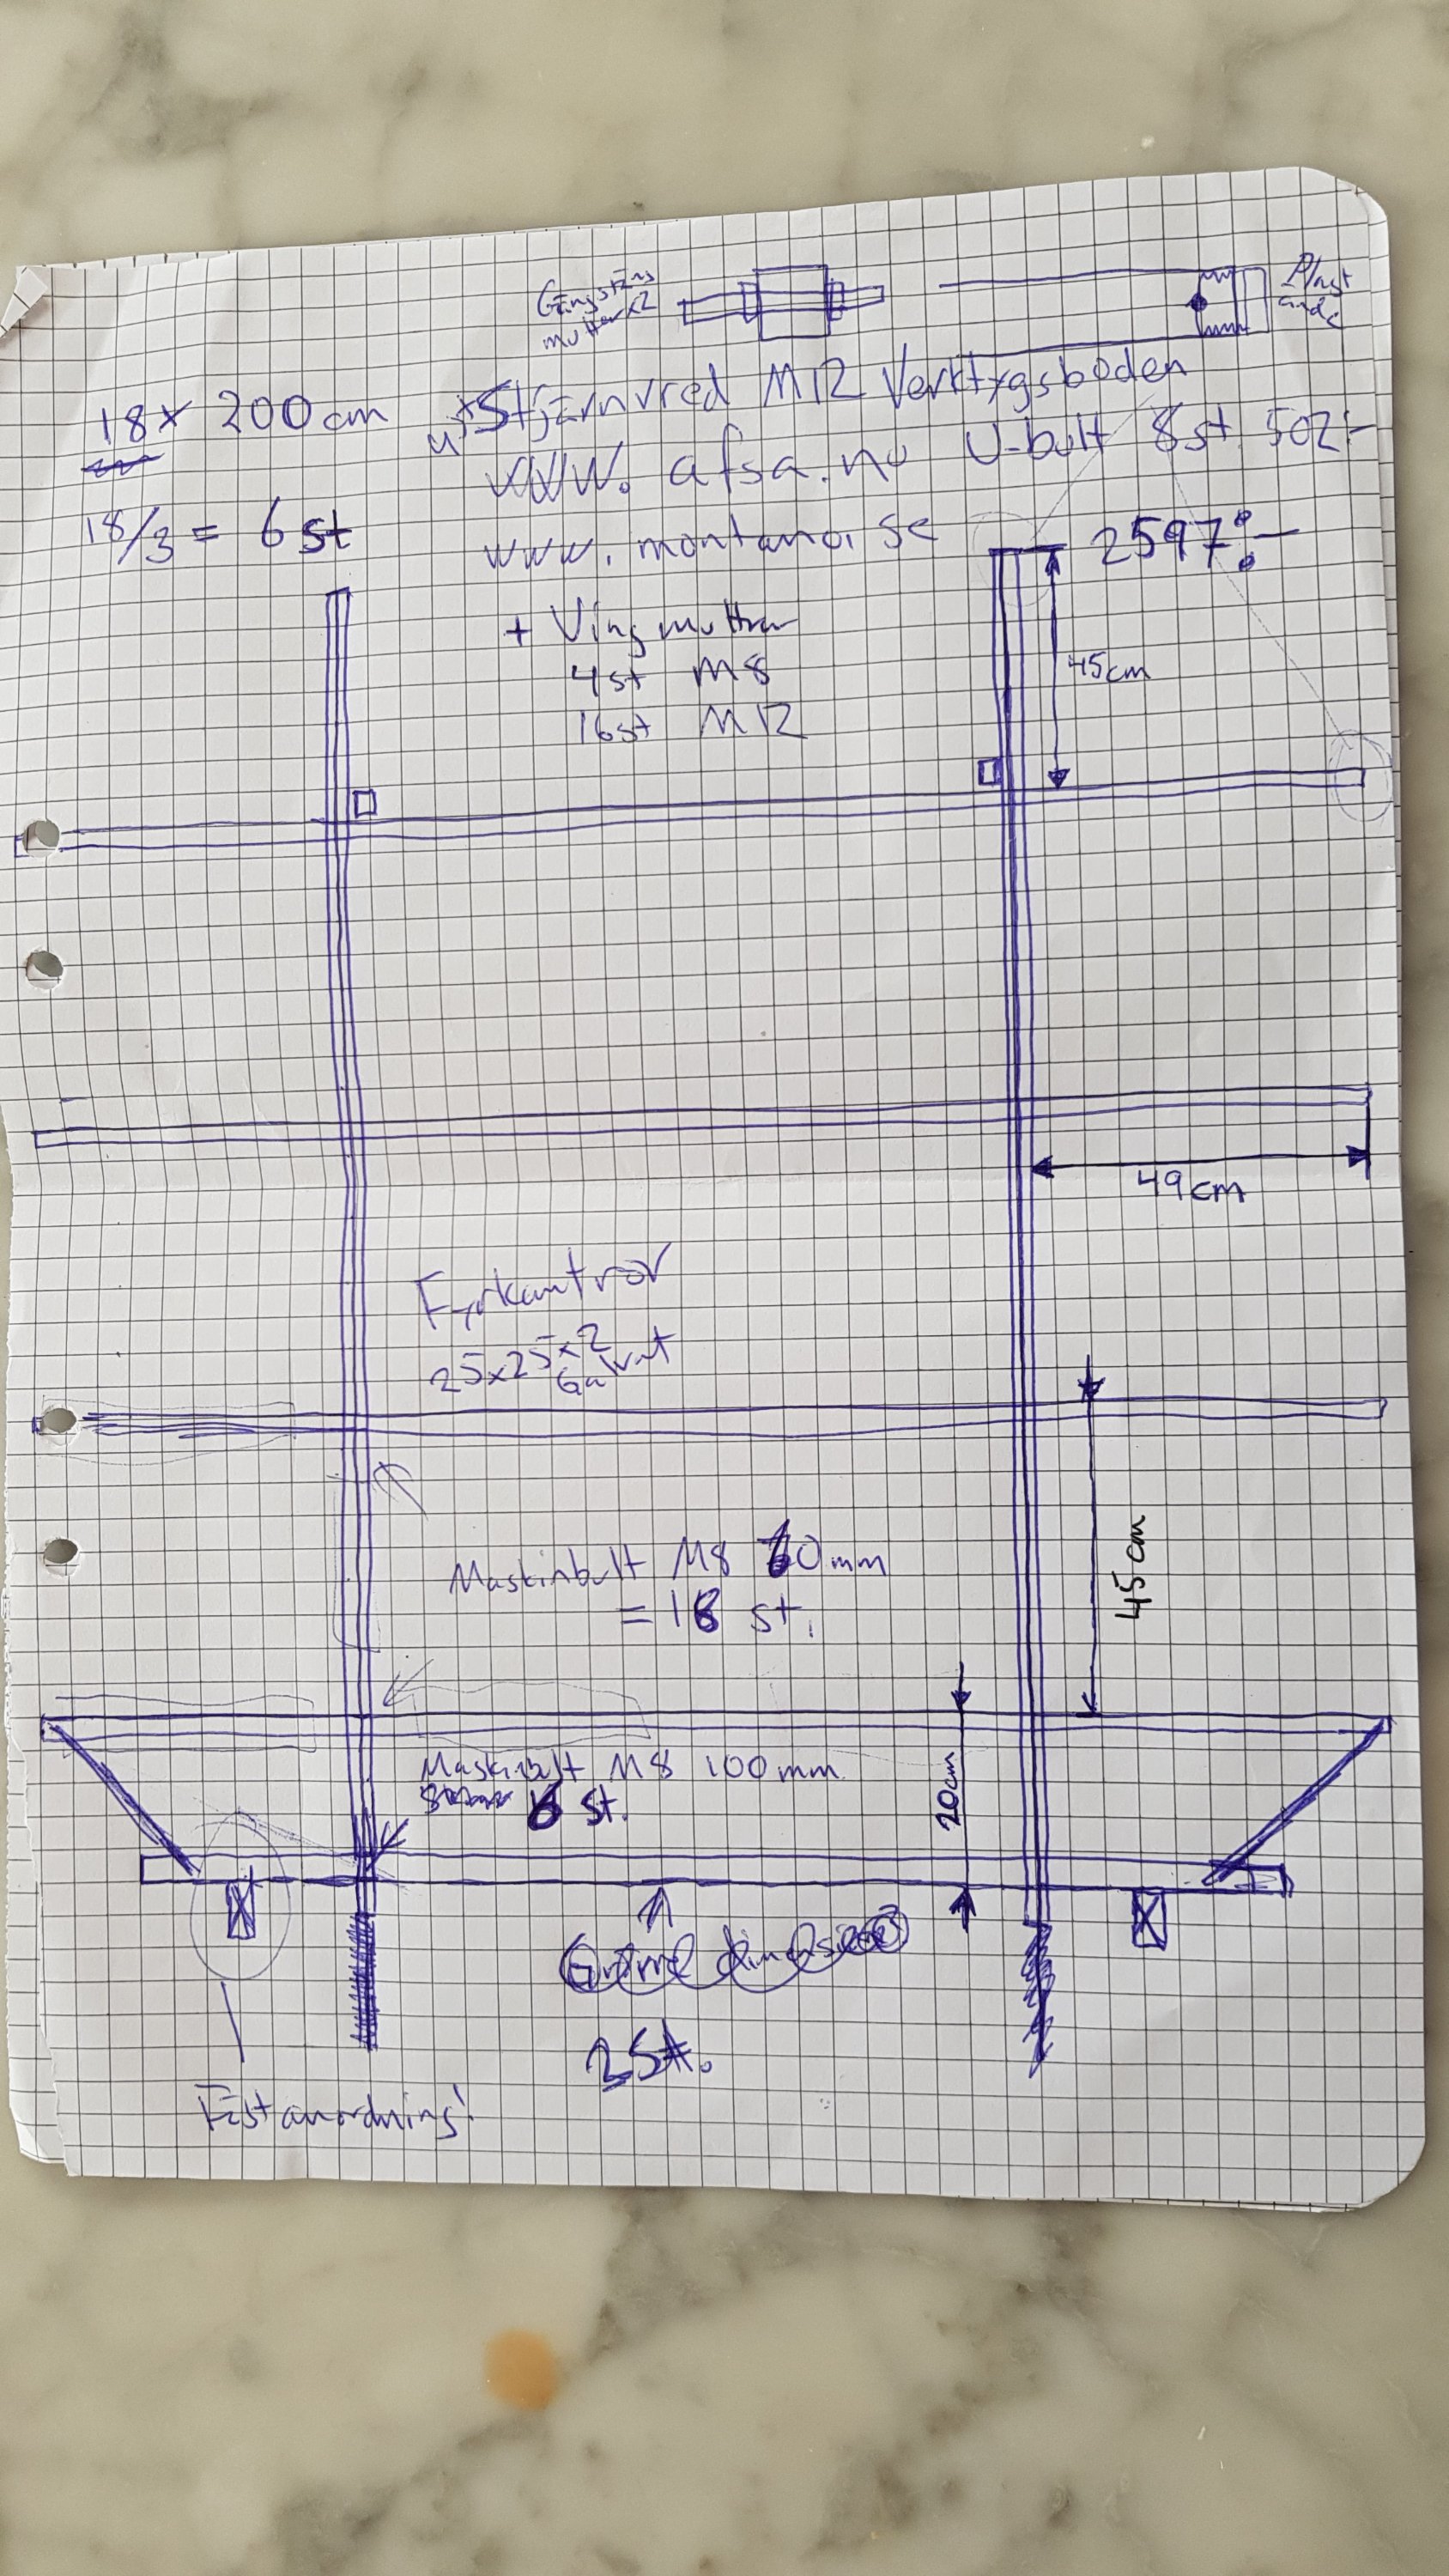 Gängstång
mutter x2
Plast
ände
18 x 200 cm
Stjärnvred M12 Verktygsboden
www. afsa.nu U-bult 8st 502:-
18/3 = 6 st
www. montano. se
2597:-
+ Vingmuttrar
4st M8
16st M12
45cm
49cm
Fyrkantrör
25x25x2
Galv
Maskinbult M8 60mm
= 18 st.
45cm
Maskinbult M8 100mm
6 st.
20cm
2st.
Fästanordning!